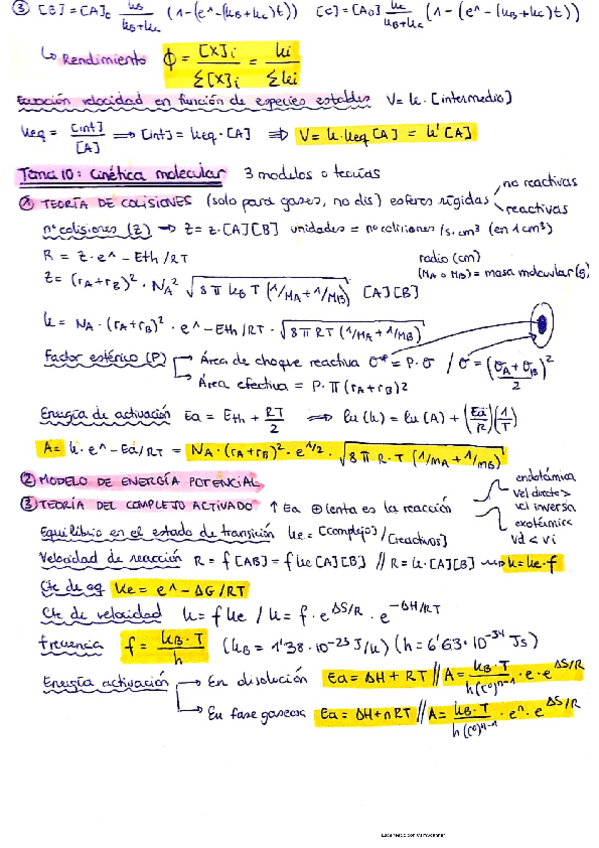 ③ [B] = [A]₀ kB/(kB+kC) (1-(e^-(kB+kC)t)) [C] = [A₀] kC/(kB+kC) (1-(e^-(kB+kC)t))
↳ Rendimiento Φ = [X]i/Σ[X]i = ki/Σki
Ecuación velocidad en función de especies estables V = k·[intermedio]
Keq = [int]/[A] ⟹ [int] = Keq·[A] ⟹ V = k·Keq[A] = k'[A]
Tema 10: Cinética molecular 3 modelos o teorías
① TEORÍA DE COLISIONES (solo para gases, no dis) esferas rígidas no reactivas
reactivas
nº colisiones (Z) → Z = z·[A][B] unidades = nº colisiones/s·cm³ (en 1 cm³)
R = Z·e^-Eth/RT radio (cm)
Z = (rA+rB)²·NA² √8π kB T (1/MA+1/MB) [A][B] (MA o MB) = masa molecular (g)
k = NA·(rA+rB)²·e^-Eth/RT·√8π RT (1/MA+1/MB)
Factor estérico (P) → Área de choque reactiva σ* = P·σ / σ = (σA+σB/2)²
→ Área efectiva = P·π(rA+rB)2
Energía de activación Ea = Eth + RT/2 ⟹ ln(k) = ln(A) + (Ea/R)(1/T)
A = k·e^-Ea/RT = NA·(rA+rB)²·e^1/2·√8π R·T (1/MA+1/MB)
② MODELO DE ENERGÍA POTENCIAL
endotérmica
vel directa >
vel inversa
③ TEORÍA DEL COMPLEJO ACTIVADO ↑ Ea ⊕ lenta es la reacción
exotérmica
vd < vi
Equilibrio en el estado de transición ke = [complejo]/[reactivos]
Velocidad de reacción R = f[AB] = f ke[A][B] // R = k·[A][B] ⟿ k = ke·f
Cte de eq Ke = e^-ΔG/RT
Cte de velocidad k = f ke / k = f·e^ΔS/R·e^-ΔH/RT
Frecuencia f = kB·T/h (kB = 1'38·10^-23 J/k) (h = 6'63·10^-34 Js)
Energía activación → En disolución Ea = ΔH + RT // A = kB·T/h(c⁰)^n-1·e·e^ΔS/R
→ En fase gaseosa Ea = ΔH + nRT // A = kB·T/h(c⁰)^n-1·e^n·e^ΔS/R